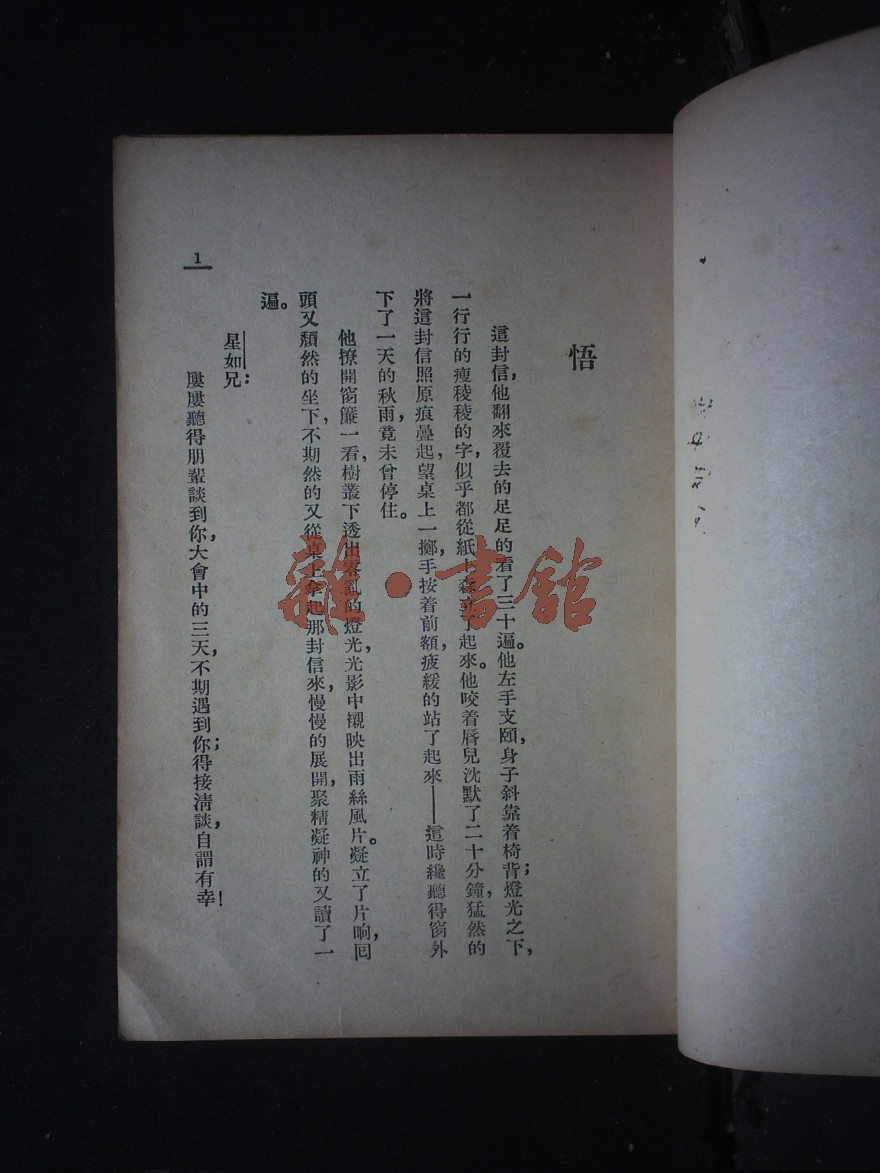 悟
這封信，他翻來覆去的足足的看了三十遍。他左手支頤，身子斜靠着椅背；燈光之下，
一行行的瘦稜稜的字，似乎都從紙上森立了起來。他咬着唇兒沈默了二十分鐘，猛然的
將這封信照原痕疊起，望桌上一擲，手按着前額，疲緩的站了起來——這時纔聽得窗外
下了一天的秋雨，竟未曾停住。
他撩開窗簾一看，樹叢下透出零亂的燈光，光影中襯映出雨絲風片。凝立了片晌，回
頭又頹然的坐下，不期然的又從桌上拿起那封信來，慢慢的展開，聚精凝神的又讀了一
遍。
星如兄：
屢屢聽得朋輩談到你，大會中的三天，不期遇到你；得接淸談，自謂有幸！
1
雜·書館